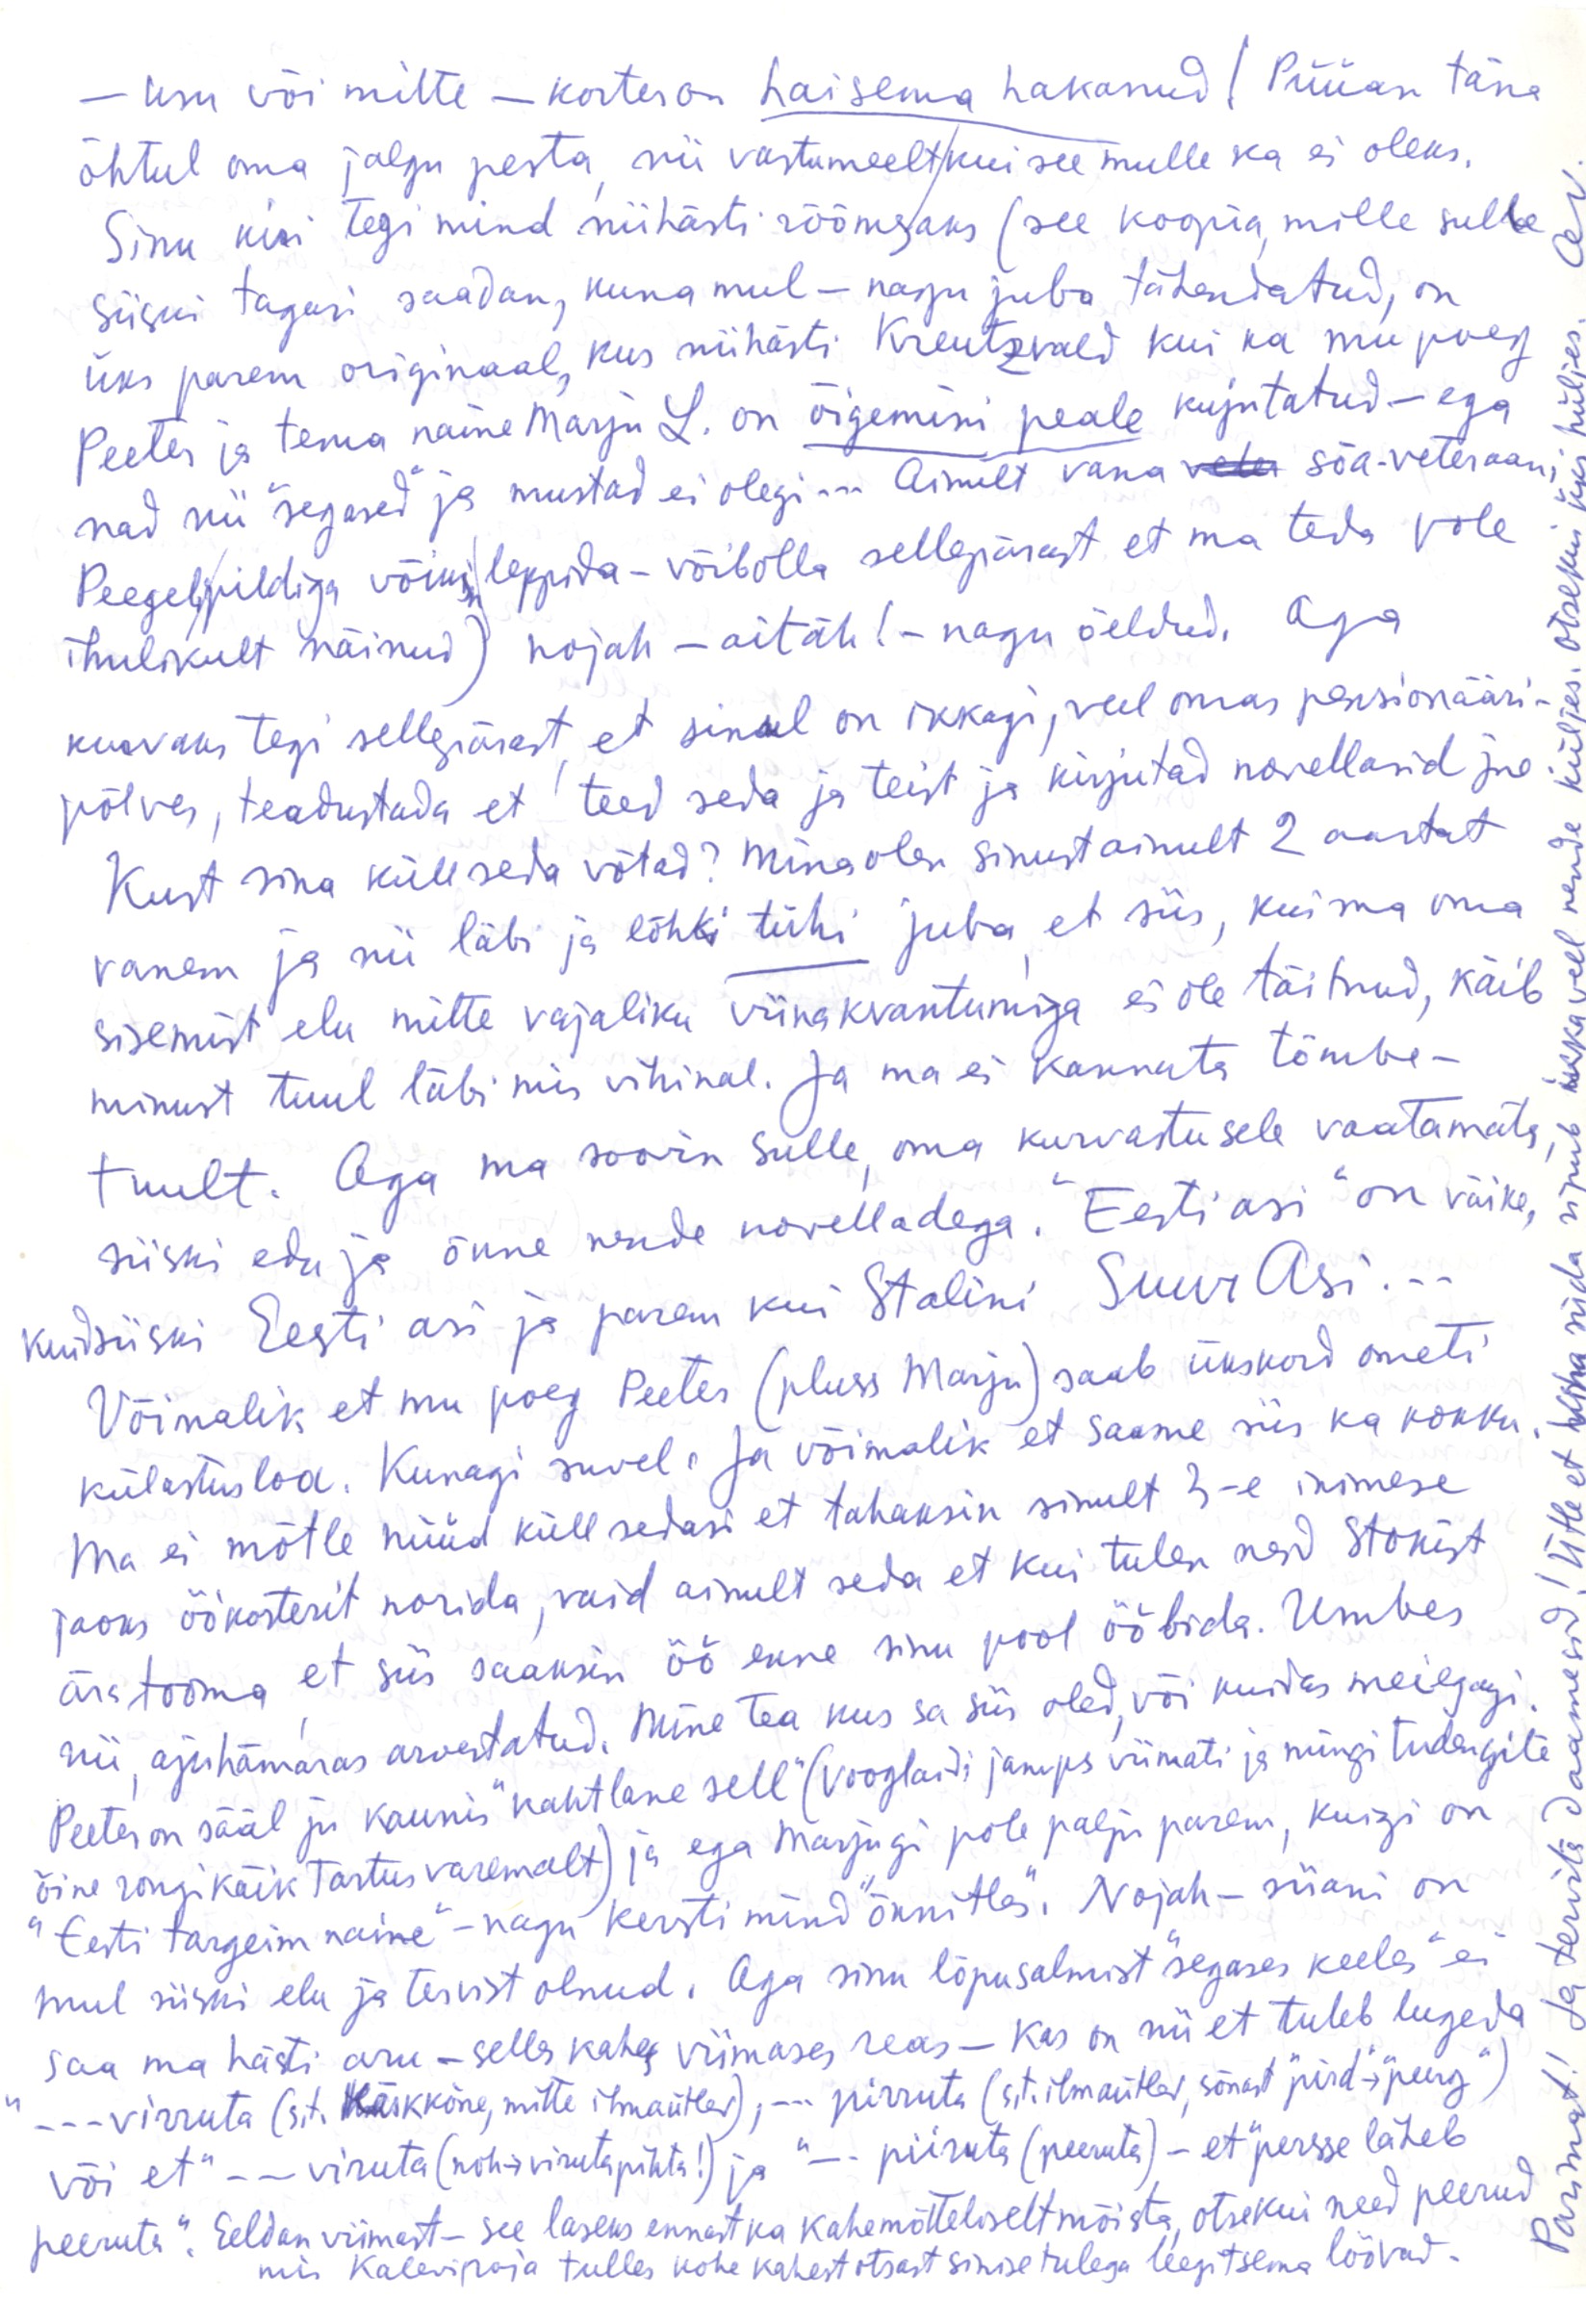 — usu või mitte — korter on haisema hakanud! Püüan täna
õhtul oma jalgu pesta, nii vastumeelt kui see mulle ka ei oleks.
Sinu kiri tegi mind niihästi rõõmsaks (see koopia, mille sulle
siiski tagasi saadan, kuna mul — nagu juba tähendatud, on
üks parem originaal, kus niihästi Kreutzwald kui ka mu poeg
Peeter ja tema naine Marju L. on õigemini peale kujutatud — ega
nad nii "segased" ja mustad ei olegi... Ainult vana sõa-veteraani
Peegelpildiga võiksin leppida — võibolla sellepärast et ma teda pole
ihulikult näinud) nojah — aitäh! — nagu öeldud. Aga
kurvaks tegi sellepärast, et sinul on ikkagi, veel omas pensionääri-
põlves, teadustada et teed seda ja teist ja kirjutad novellasid jne
Kust sina küll seda võtad? Mina olen sinust ainult 2 aastat
vanem ja nii läbi ja lõhki tühi juba, et siis, kui ma oma
sisemist elu mitte vajaliku viinakvantumiga ei ole täitnud, käib
minust tuul läbi mis vihinal. Ja ma ei kannata tõmbe-
tuult. Aga ma soovin sulle, oma kurvastusele vaatamata,
siiski edu ja õnne nende novelladega. "Eesti asi" on väike,
kuid siiski Eesti asi ja parem kui Stalini Suur Asi...
Võimalik et mu poeg Peeter (pluss Marju) saab ükskord ometi
külastusloa. Kunagi suvel. Ja võimalik et saame siis ka kokku.
Ma ei mõtle nüüd küll sedasi et tahaksin sinult 3-e inimese
jaoks öökorterit norida, vaid ainult seda et kui tulen neid Stokist
ära tooma, et siis saaksin öö enne sinu pool ööbida. Umbes
nii, ajuhämaras arvestatud. Mine tea kus sa siis oled, või kuidas meiegagi.
Peeter on sääl ju kaunis "kahtlane sell" (Vooglaidi jamps viimati ja mingi tudengite
öine rongikäik Tartus varemalt) ja ega Marjugi pole palju parem, kuigi on
"Eesti targeim naine" — nagu Kersti mind "õnnitles". Nojah — siiani on
mul siiski elu ja tervist olnud. Aga sinu lõpusalmist "segases keeles" ei
saa ma hästi aru — selles kahes viimases reas — Kas on nii et tuleb lugeda
"--- virruta (s.t. käskkõne, mitte ilmaütlev), --- pirruta (s.t. ilmaütlev, sõnast "pird" → "peerg")
või et "--- viruta (noh → viruta pihta!) ja "--- piiruta (peeruta) — et "persse läheb
peeruta". Eeldan viimast — see laseks ennast ka kahemõtteliselt mõista, otsekui need peerud
mis Kalevipoja tulles kohe kahest otsast sinise tulega leegitsema löövad.
Parimat! Ja tervita daamesid! Ütle et süda ripub ikka veel nende küljes. Otsekui üks hüljes.